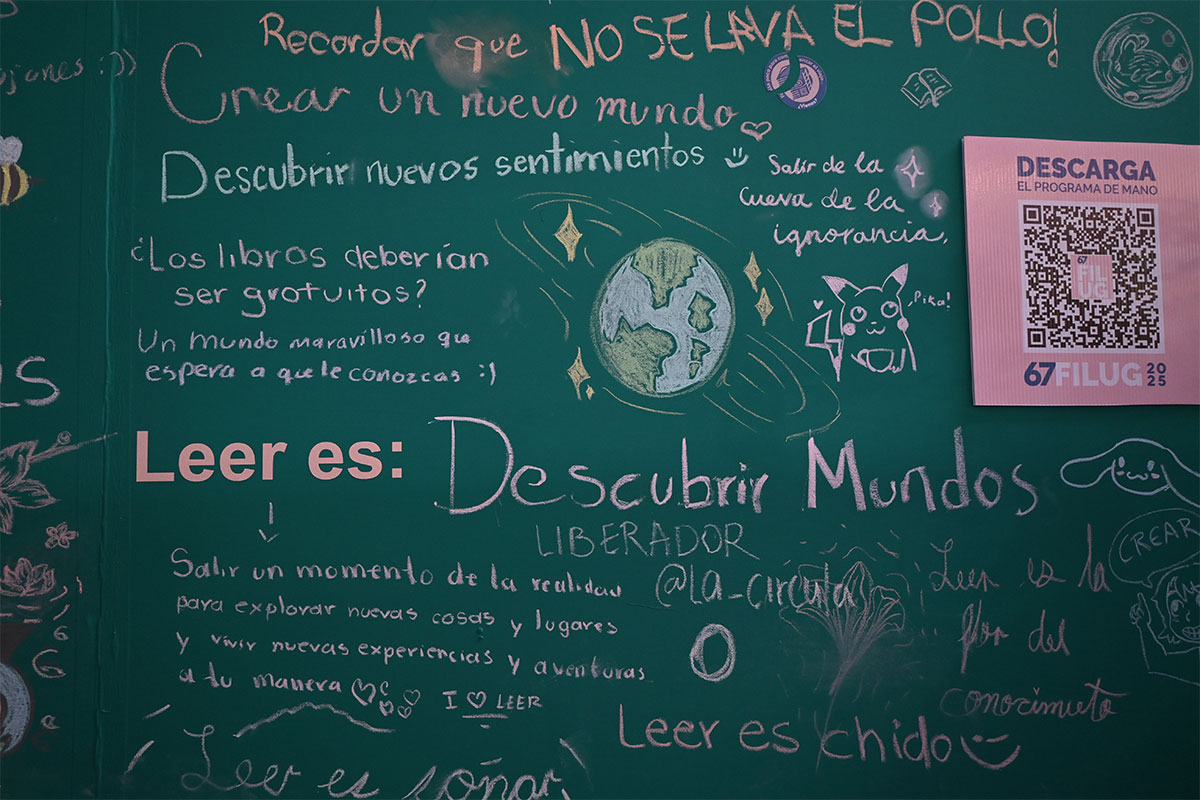 Recordar que NO SE LAVA EL POLLO!
ojones :))
Crear un nuevo mundo
Descubrir nuevos sentimientos
Salir de la
cueva de la
ignorancia.
DESCARGA
EL PROGRAMA DE MANO
67
FIL
UG
67FILUG 2025
¿Los libros deberían
ser gratuitos?
Un mundo maravilloso que
espera a que le conozcas :)
Pika!
Leer es:
Descubrir Mundos
LIBERADOR
@La_circula
Salir un momento de la realidad
para explorar nuevas cosas y lugares
y vivir nuevas experiencias y aventuras
a tu manera
I ♡ LEER
Leer es la
flor del
conocimieto
CREAR
Leer es chido
Leer es soñar